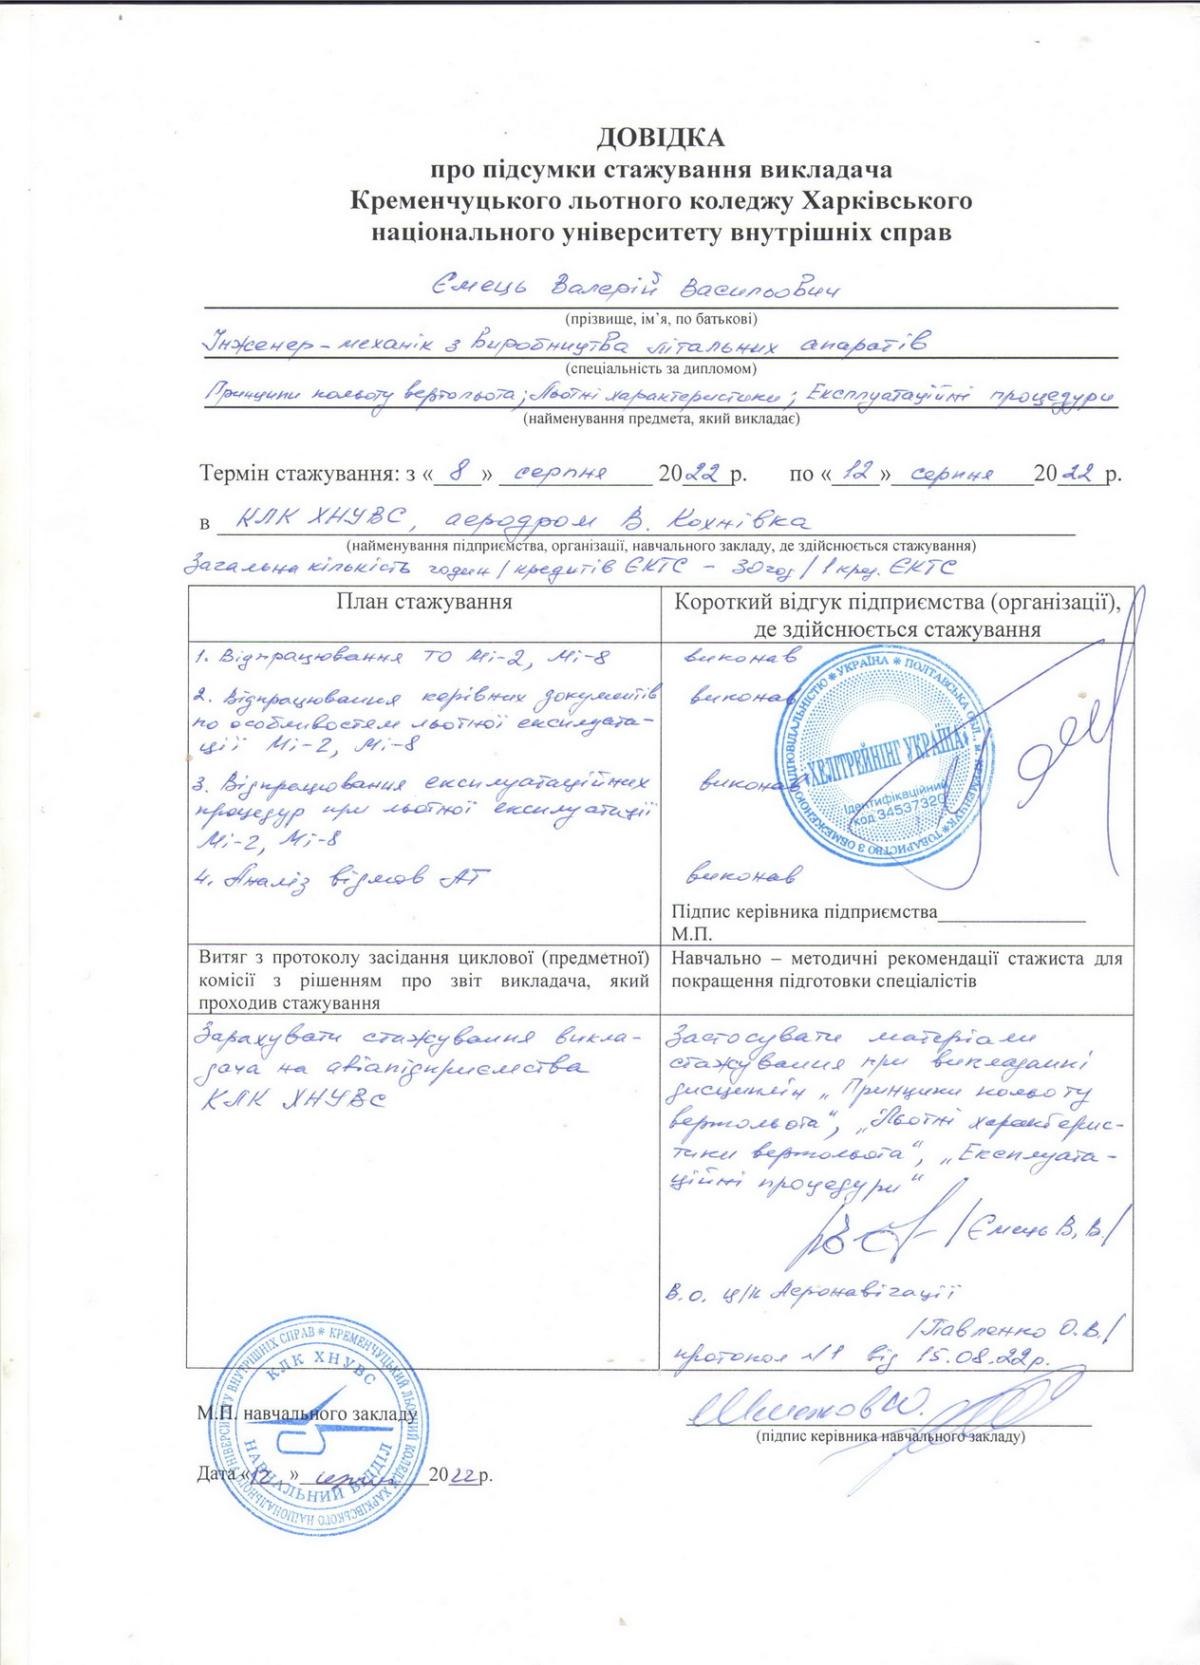 ДОВІДКА
про підсумки стажування викладача
Кременчуцького льотного коледжу Харківського
національного університету внутрішніх справ
Ємець Валерій Васильович
(прізвище, ім’я, по батькові)
Інженер-механік з виробництва літальних апаратів
(спеціальність за дипломом)
Принципи польоту вертольота; Льотні характеристики; Експлуатаційні процедури
(найменування предмета, який викладає)
Термін стажування: з «8» серпня 2022 р. по «12» серпня 2022 р.
в КЛК ХНУВС, аеродром В. Кохнівка
(найменування підприємства, організації, навчального закладу, де здійснюється стажування)
Загальна кількість годин/кредитів ЄКТС - 30год/1 кред. ЄКТС
План стажування
1. Відпрацювання ТО Мі-2, Мі-8
2. Відпрацювання керівних документів
по особливостям льотної експлуата-
ції Мі-2, Мі-8
3. Відпрацювання експлуатаційних
процедур при льотній експлуатації
Мі-2, Мі-8
4. Аналіз відмов АТ
Короткий відгук підприємства (організації),
де здійснюється стажування
виконав
виконав
виконав
виконав
УКРАЇНА * ПОЛТАВСЬКА ОБЛ., м. КРЕМЕНЧУК * ТОВАРИСТВО З ОБМЕЖЕНОЮ ВІДПОВІДАЛЬНІСТЮ *
"ХЕЛІТРЕЙНІНГ УКРАЇНА"
Ідентифікаційний
код 34537320
Підпис керівника підприємства
М.П.
Витяг з протоколу засідання циклової (предметної)
комісії з рішенням про звіт викладача, який
проходив стажування
Зарахувати стажування викла-
дача на авіапідприємства
КЛК ХНУВС
Навчально – методичні рекомендації стажиста для
покращення підготовки спеціалістів
Застосувати матеріали
стажування при викладанні
дисциплін „Принципи польоту
вертольота“, „Льотні характерис-
тики вертольота“, „Експлуата-
ційні процедури“
/Ємець В.В./
В.о. ц/к Аеронавігації
/Павленко О.В./
протокол №1 від 15.08.22р.
(підпис керівника навчального закладу)
М.П. навчального закладу
КРЕМЕНЧУЦЬКИЙ ЛЬОТНИЙ КОЛЕДЖ ХАРКІВСЬКОГО НАЦІОНАЛЬНОГО УНІВЕРСИТЕТУ ВНУТРІШНІХ СПРАВ *
КЛК ХНУВС
НАВЧАЛЬНИЙ ВІДДІЛ
Дата «12» серпня 2022р.